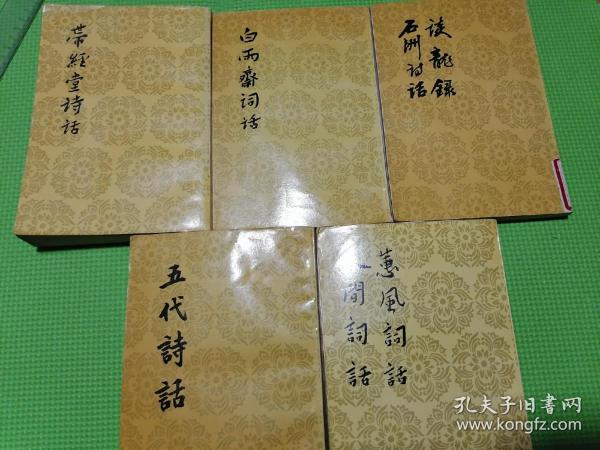 帶經堂詩话
白雨齋词话
谈龍錄
石洲诗话
五代詩話
蕙風詞話
人間詞話
孔夫子旧书网
www.kongfz.com